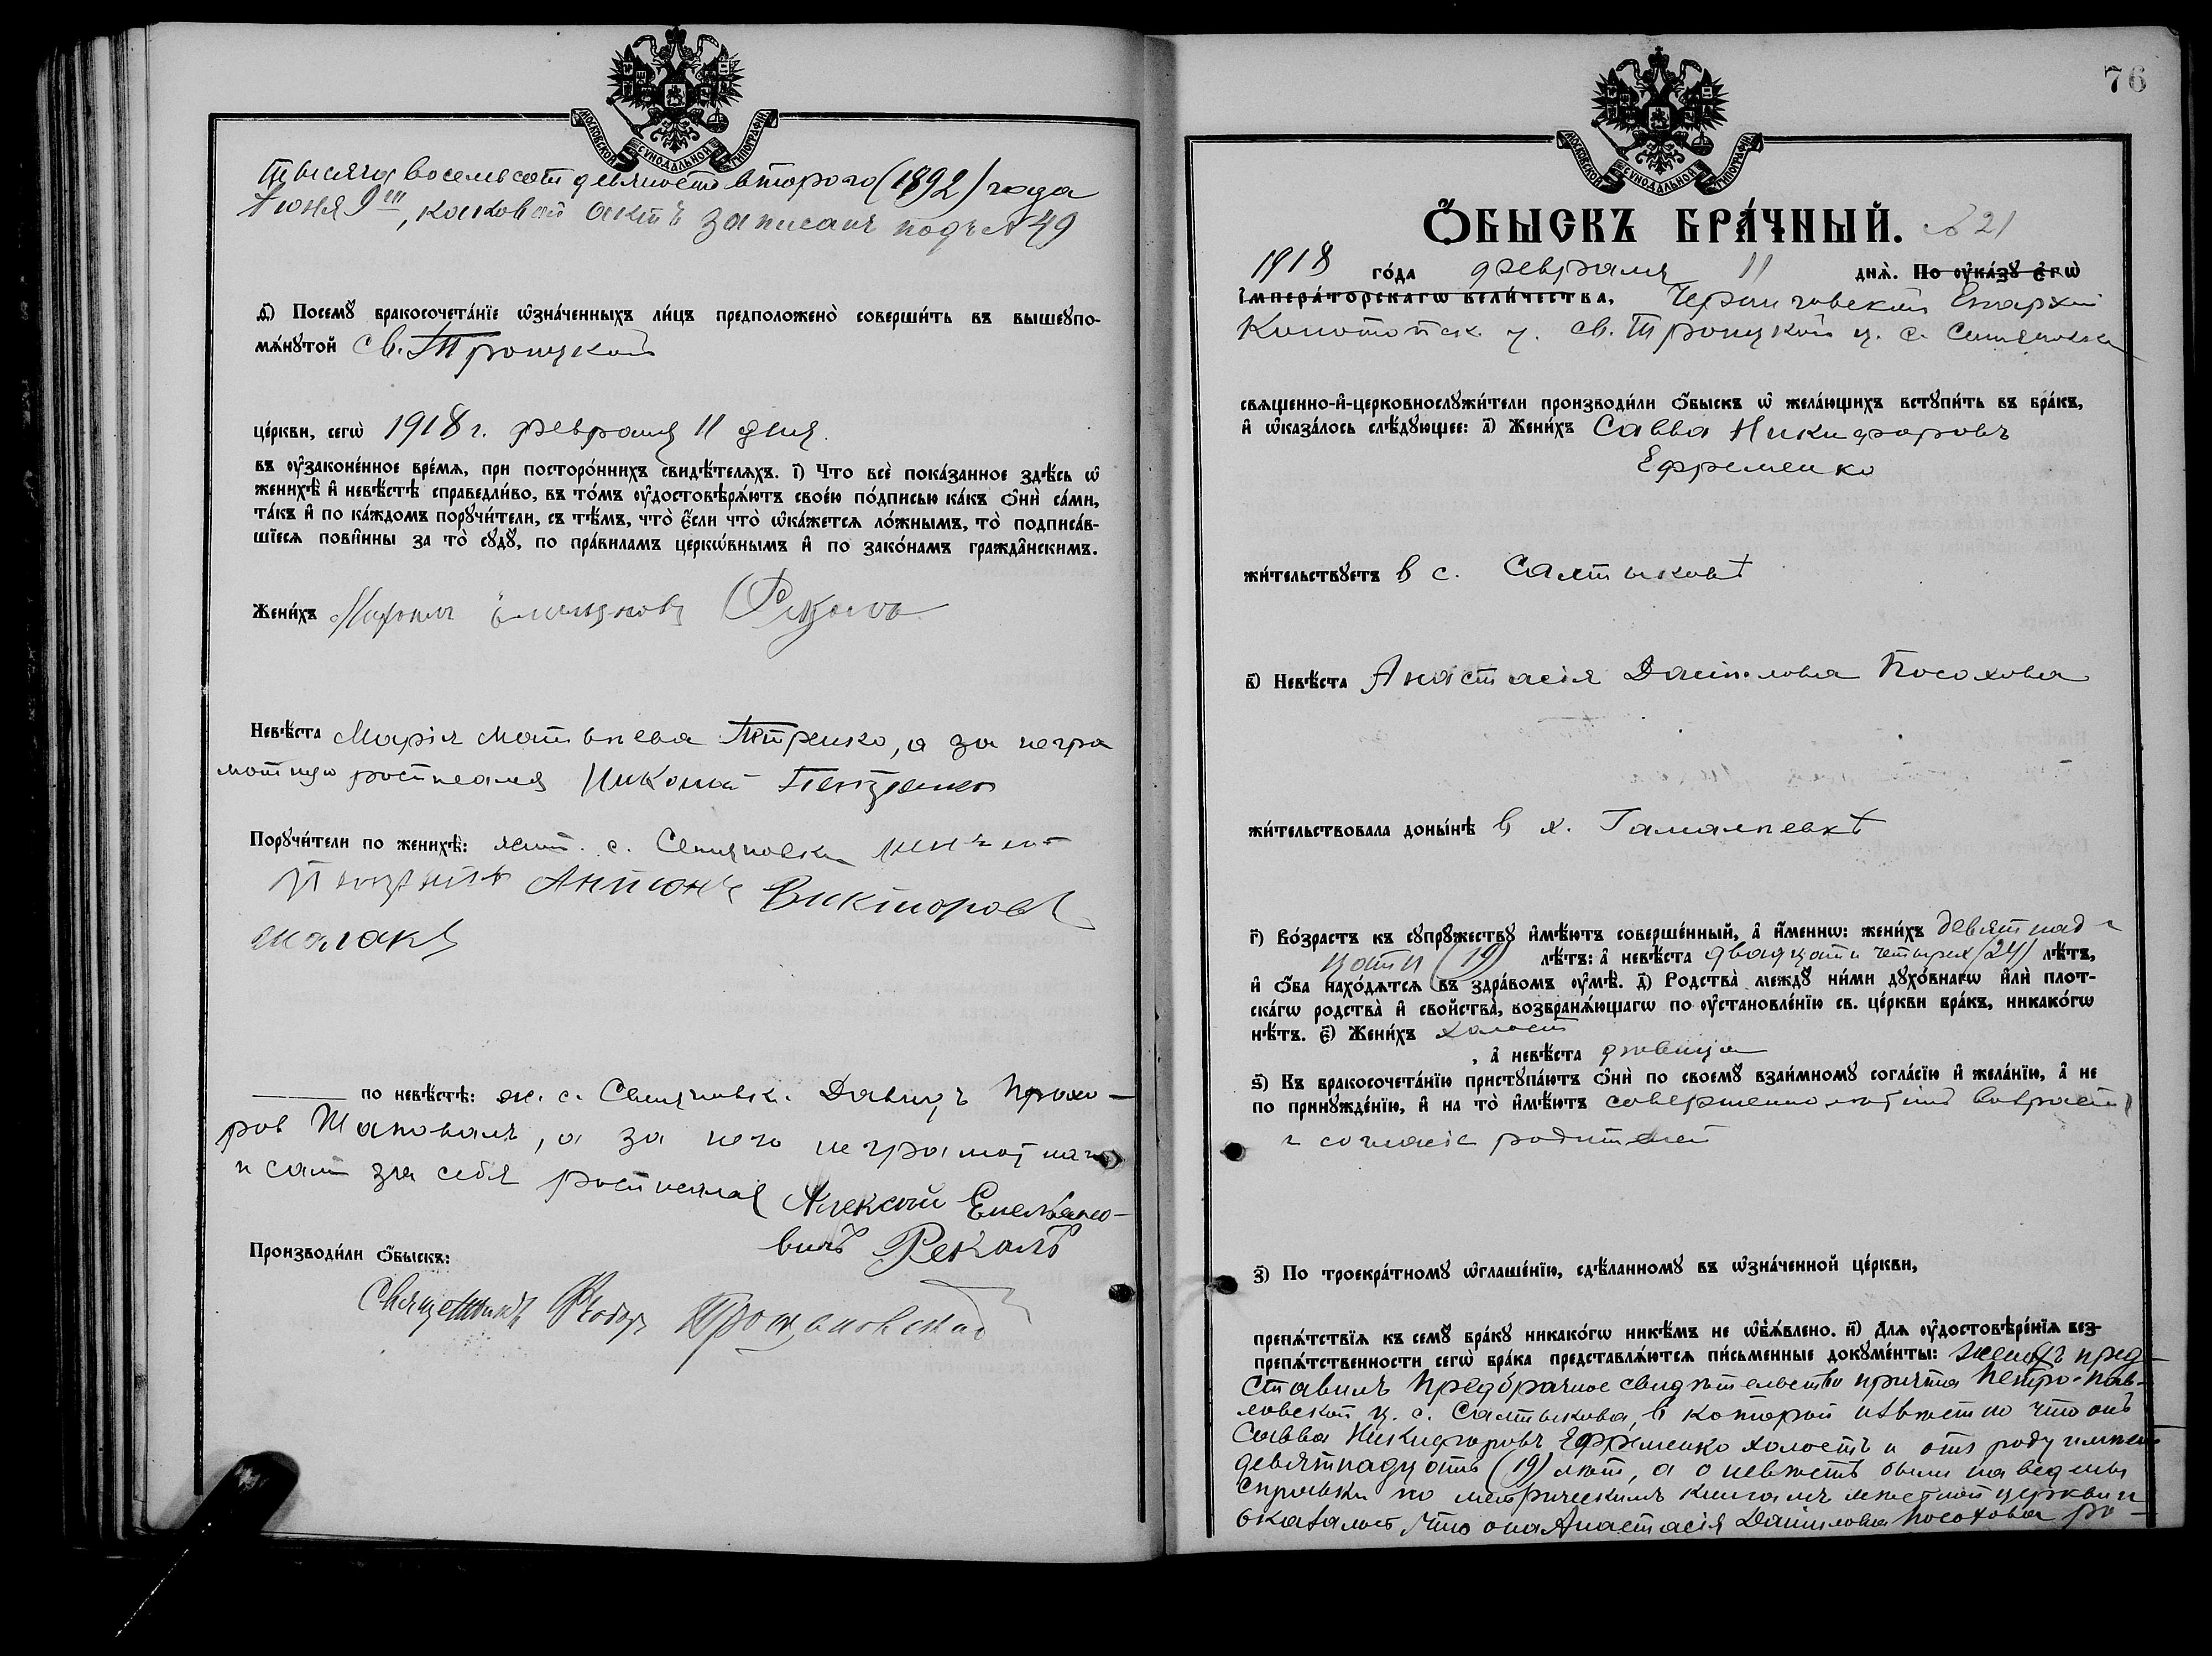 МОСКОВСКОЙ СѴНОДАЛЬНОЙ ТИПОГРАФІИ
тысяча восемьсот девяносто второго (1892) года
Іюня 9го, каковой актъ записанъ подъ № 49
д҃) Посемꙋ̀ бракосочета́нїе ѡ҆зна́ченныхъ ли́цъ предположено̀ соверши́ть въ вышеꙋпо-
мѧ́нꙋтой Св. Троицкой
це́ркви, сегѡ̀ 1918 г. февраля 11 дня.
въ ᲂу҆законе́нное вре́мѧ, при посторо́ннихъ свидѣ́телѧхъ. і҃) Что всѐ пока́занное здѣ́сь ѡ҆
женихѣ̀ и҆ невѣ́стѣ справедли́во, въ то́мъ ᲂу҆достовѣрѧ́ютъ свое́ю по́дписью ка́къ ѻ҆нѝ са́ми,
та́къ и҆ по ка́ждомъ порꙋчи́тели, съ тѣ́мъ, что̀ є҆́сли что̀ ѡ҆ка́жетсѧ ло́жнымъ, то̀ подписа́в-
шїесѧ пови́нны за то̀ сꙋдꙋ̀, по пра́виламъ церкѡ́внымъ и҆ по зако́намъ гражда́нскимъ.
Жени́хъ
Невѣ́ста Марія Матвѣева Петренко, а за негра
мотную росписался Николай Петренко
Порꙋчи́тели по женихѣ̀: жит. с. Семяновки
Антонъ Викторовъ
по невѣ́стѣ: ж. с. Семяновки Давидъ Прохо-
ров Шаповалъ, а за него неграмотнаго
и самъ за себя росписался Алексѣй Емельяно-
вичъ Рекалъ
Производи́ли ѻ҆́быскъ:
Священникъ Ѳеодоръ
76
МОСКОВСКОЙ СѴНОДАЛЬНОЙ ТИПОГРАФІИ
Ѻ҆́БЫСКЪ БРА́ЧНЫЙ. № 21
1918 го́да февраля 11 днѧ̀. По ᲂу҆ка́зꙋ є҆гѡ̀
і҆мпера́торскагѡ вели́чества, Черниговской Епархіи
Конотопск. у. св. Троицкой ц. с. Семяновки
свѧщенно-и҆-церковнослꙋжи́тели производи́ли ѻ҆́быскъ ѡ҆ жела́ющихъ встꙋпи́ть въ бра́къ,
и҆ ѡ҆каза́лось слѣ́дꙋющее: а҃) Жени́хъ Савва Никифоровъ
Ефременко
жи́тельствꙋетъ в с. Салтыковѣ
в҃) Невѣ́ста Анастасія Даніилова Посохова
жи́тельствовала доны́нѣ в х. Гамалеевкѣ
г҃) Во́зрастъ къ сꙋпрꙋ́жествꙋ и҆мѣ́ютъ соверше́нный, а҆ и҆́меннѡ: жени́хъ девятнад-
цати (19) лѣ́тъ: а҆ невѣ́ста двадцати четырех (24) лѣ́тъ,
и҆ ѻ҆́ба нахо́дѧтсѧ въ здра́вомъ ᲂу҆мѣ̀. д҃) Родства̀ междꙋ̀ ни́ми дꙋхо́внагѡ и҆лѝ плот-
ска́гѡ родства̀ и҆ сво́йства̀, возбранѧ́ющагѡ по ᲂу҆становле́нїю св. це́ркви бра́къ, никако́гѡ
нѣ́тъ. є҃) Жени́хъ холостъ
, а҆ невѣ́ста дѣвица
ѕ҃) Къ бракосочета́нїю пристꙋпа́ютъ ѻ҆нѝ по своемꙋ̀ взаи́мномꙋ согла́сїю и҆ жела́нїю, а҆ не
по принꙋжде́нїю, и҆ на то̀ и҆мѣ́ютъ совершеннолѣтній возрастъ
и согласіе родителей
з҃) По троекра́тномꙋ ѡ҆глаше́нїю, сдѣ́ланномꙋ въ ѡ҆зна́ченной це́ркви,
препѧ́тствїѧ къ семꙋ̀ бра́кꙋ никако́гѡ никѣ́мъ не ѡ҆б̾ѧ́влено. и҃) Для ᲂу҆достовѣре́нїѧ без-
препѧ́тственности сегѡ̀ бра́ка представлѧ́ютсѧ пи́сьменные докꙋме́нты: женихъ пред-
ставилъ предбрачное свидѣтельство причта Петро-Пав-
ловской ц. с. Салтыкова, в которой извѣстно что онъ
Савва Никифоровъ Ефременко холостъ и отъ роду имѣетъ
девятнадцать (19) лѣтъ, а о невѣстѣ были наведены
справки по метрическимъ книгамъ мѣстной церкви и
оказалось, что она Анастасія Даниилова Посохова ро-